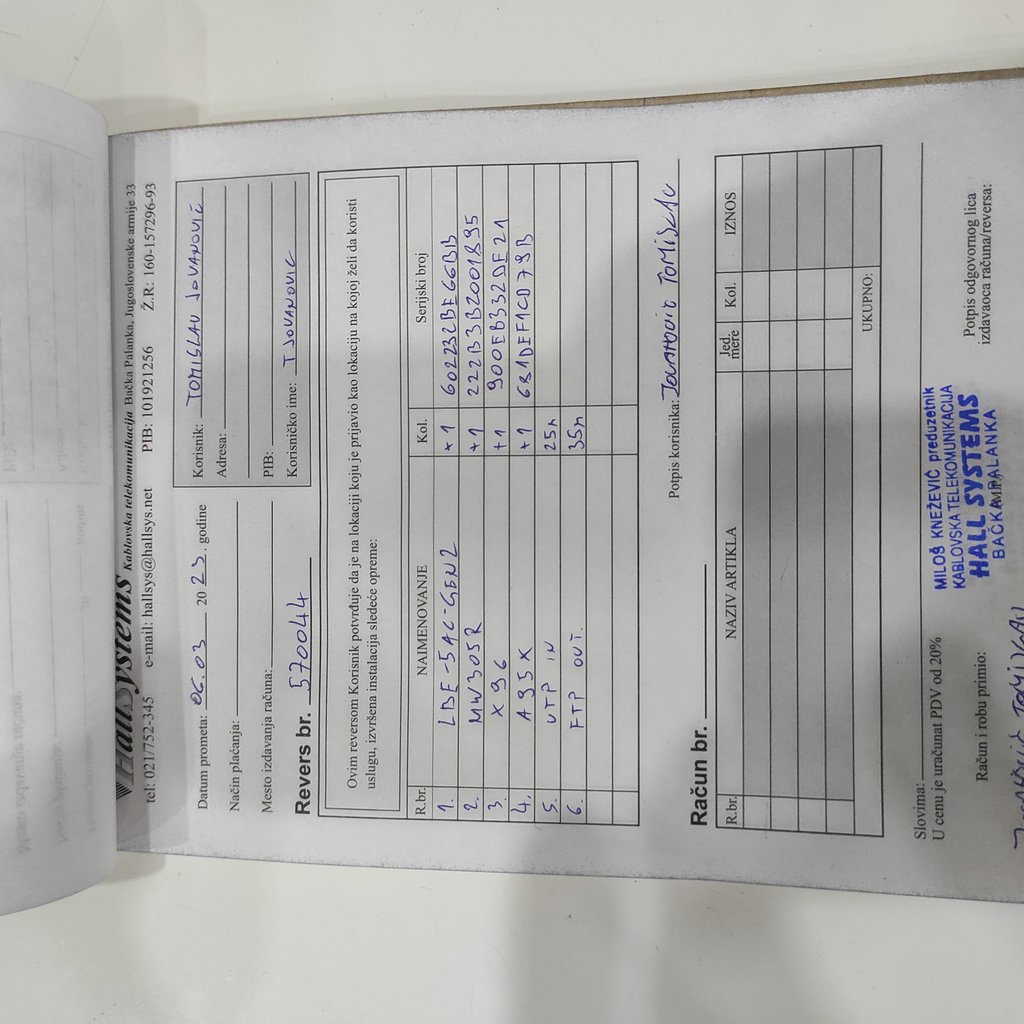 HallSystems Kablovska telekomunikacija Bačka Palanka, Jugoslovenske armije 33
tel: 021/752-345 e-mail: hallsys@hallsys.net PIB: 101921256 Ž.R: 160-157296-93
Datum prometa: 06.03 2023. godine
Način plaćanja:
Mesto izdavanja računa:
Korisnik: TOMISLAV JOVANOVIĆ
Adresa:
PIB:
Korisničko ime: TJOVANOVIC
Revers br. 570044
Ovim reversom Korisnik potvrđuje da je na lokaciji koju je prijavio kao lokaciju na kojoj želi da koristi
uslugu, izvršena instalacija sledeće opreme:
R.br. NAIMENOVANJE Kol. Serijski broj
1. LBE-5AC-GEN2 +1 602232BE66BB
2. MW305R +1 222B3B2001895
3. X96 +1 900EB332DE21
4. A95X +1 681DEF1CD79B
5. UTP IN 25m
6. FTP OUT. 35m
Potpis korisnika: Јовановић Томислав
Račun br.
R.br. NAZIV ARTIKLA Jed. mere Kol. IZNOS
UKUPNO:
Slovima:
U cenu je uračunat PDV od 20%
Račun i robu primio:
MILOŠ KNEŽEVIĆ preduzetnik
KABLOVSKA TELEKOMUNIKACIJA
HALL SYSTEMS
BAČKA PALANKA
Potpis odgovornog lica
izdavaoca računa/reversa: